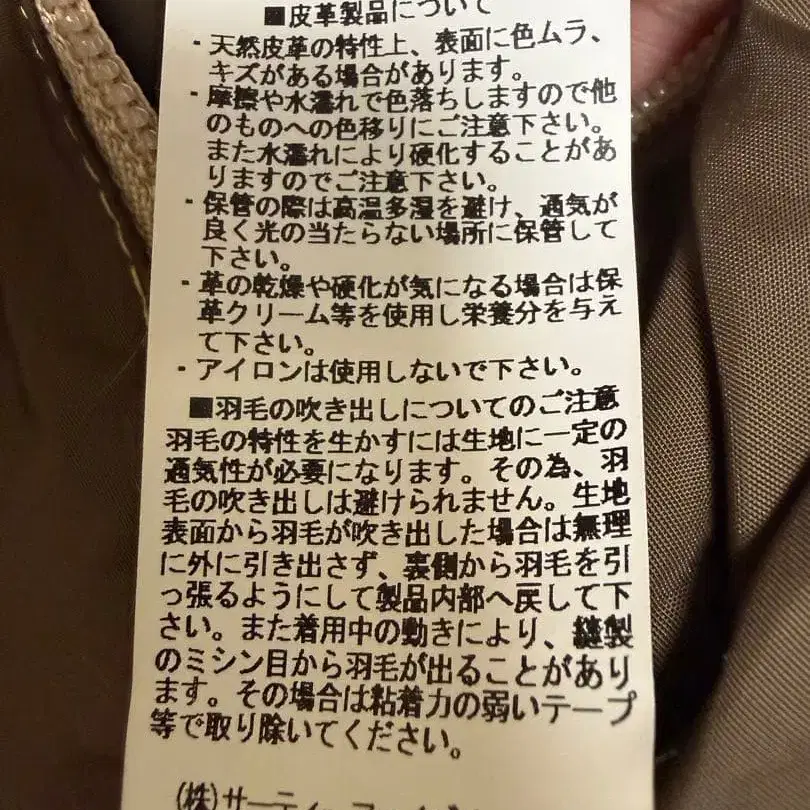 ■皮革製品について
・天然皮革の特性上、表面に色ムラ、
キズがある場合があります。
・摩擦や水濡れで色落ちしますので他
のものへの色移りにご注意下さい。
また水濡れにより硬化することがあ
りますのでご注意下さい。
・保管の際は高温多湿を避け、通気が
良く光の当たらない場所に保管して
下さい。
・革の乾燥や硬化が気になる場合は保
革クリーム等を使用し栄養分を与え
て下さい。
・アイロンは使用しないで下さい。
■羽毛の吹き出しについてのご注意
羽毛の特性を生かすには生地に一定の
通気性が必要になります。その為、羽
毛の吹き出しは避けられません。生地
表面から羽毛が吹き出した場合は無理
に外に引き出さず、裏側から羽毛を引
っ張るようにして製品内部へ戻して下
さい。また着用中の動きにより、縫製
のミシン目から羽毛が出ることがあり
ます。その場合は粘着力の弱いテープ
等で取り除いてください。
(株)サーティ